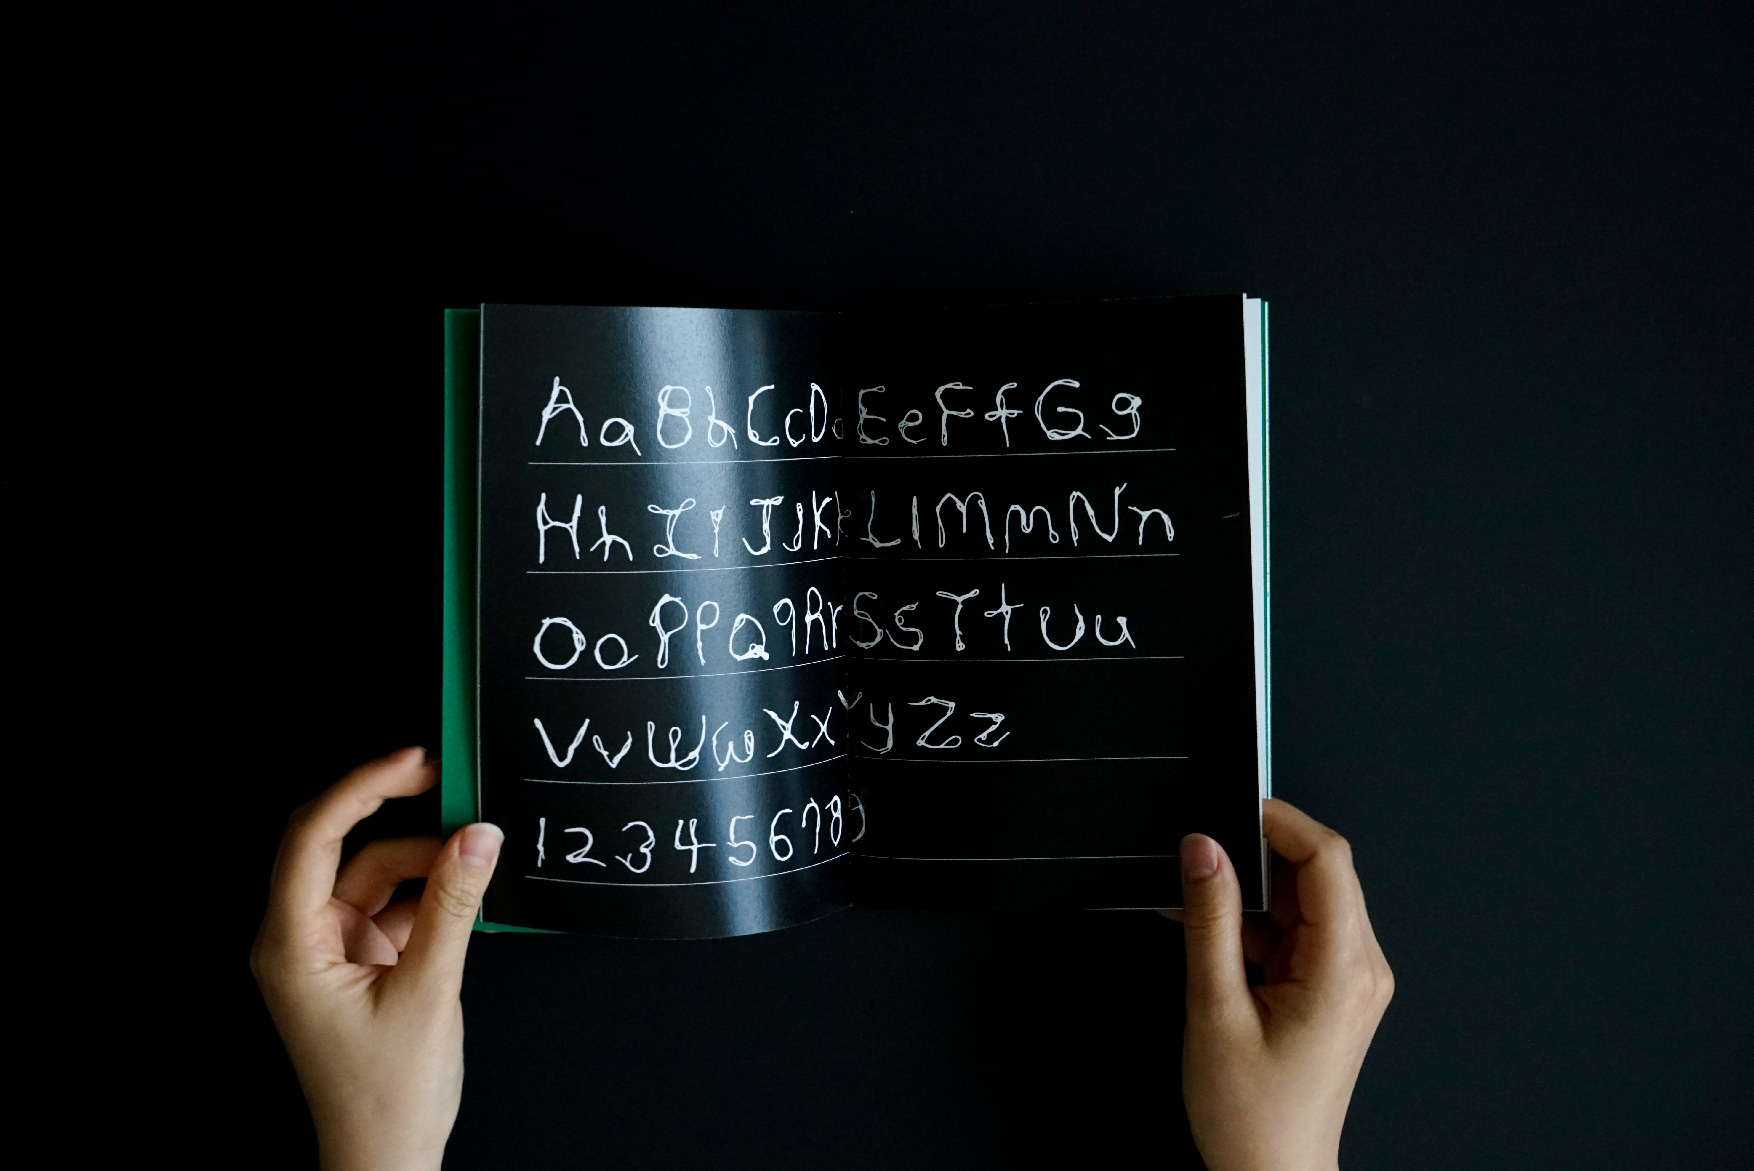 Aa Bb Cc Dd Ee Ff Gg
Hh Ii Jj Kk Ll Mm Nn
Oo Pp Qq Rr Ss Tt Uu
Vv Ww Xx Yy Zz
123456789